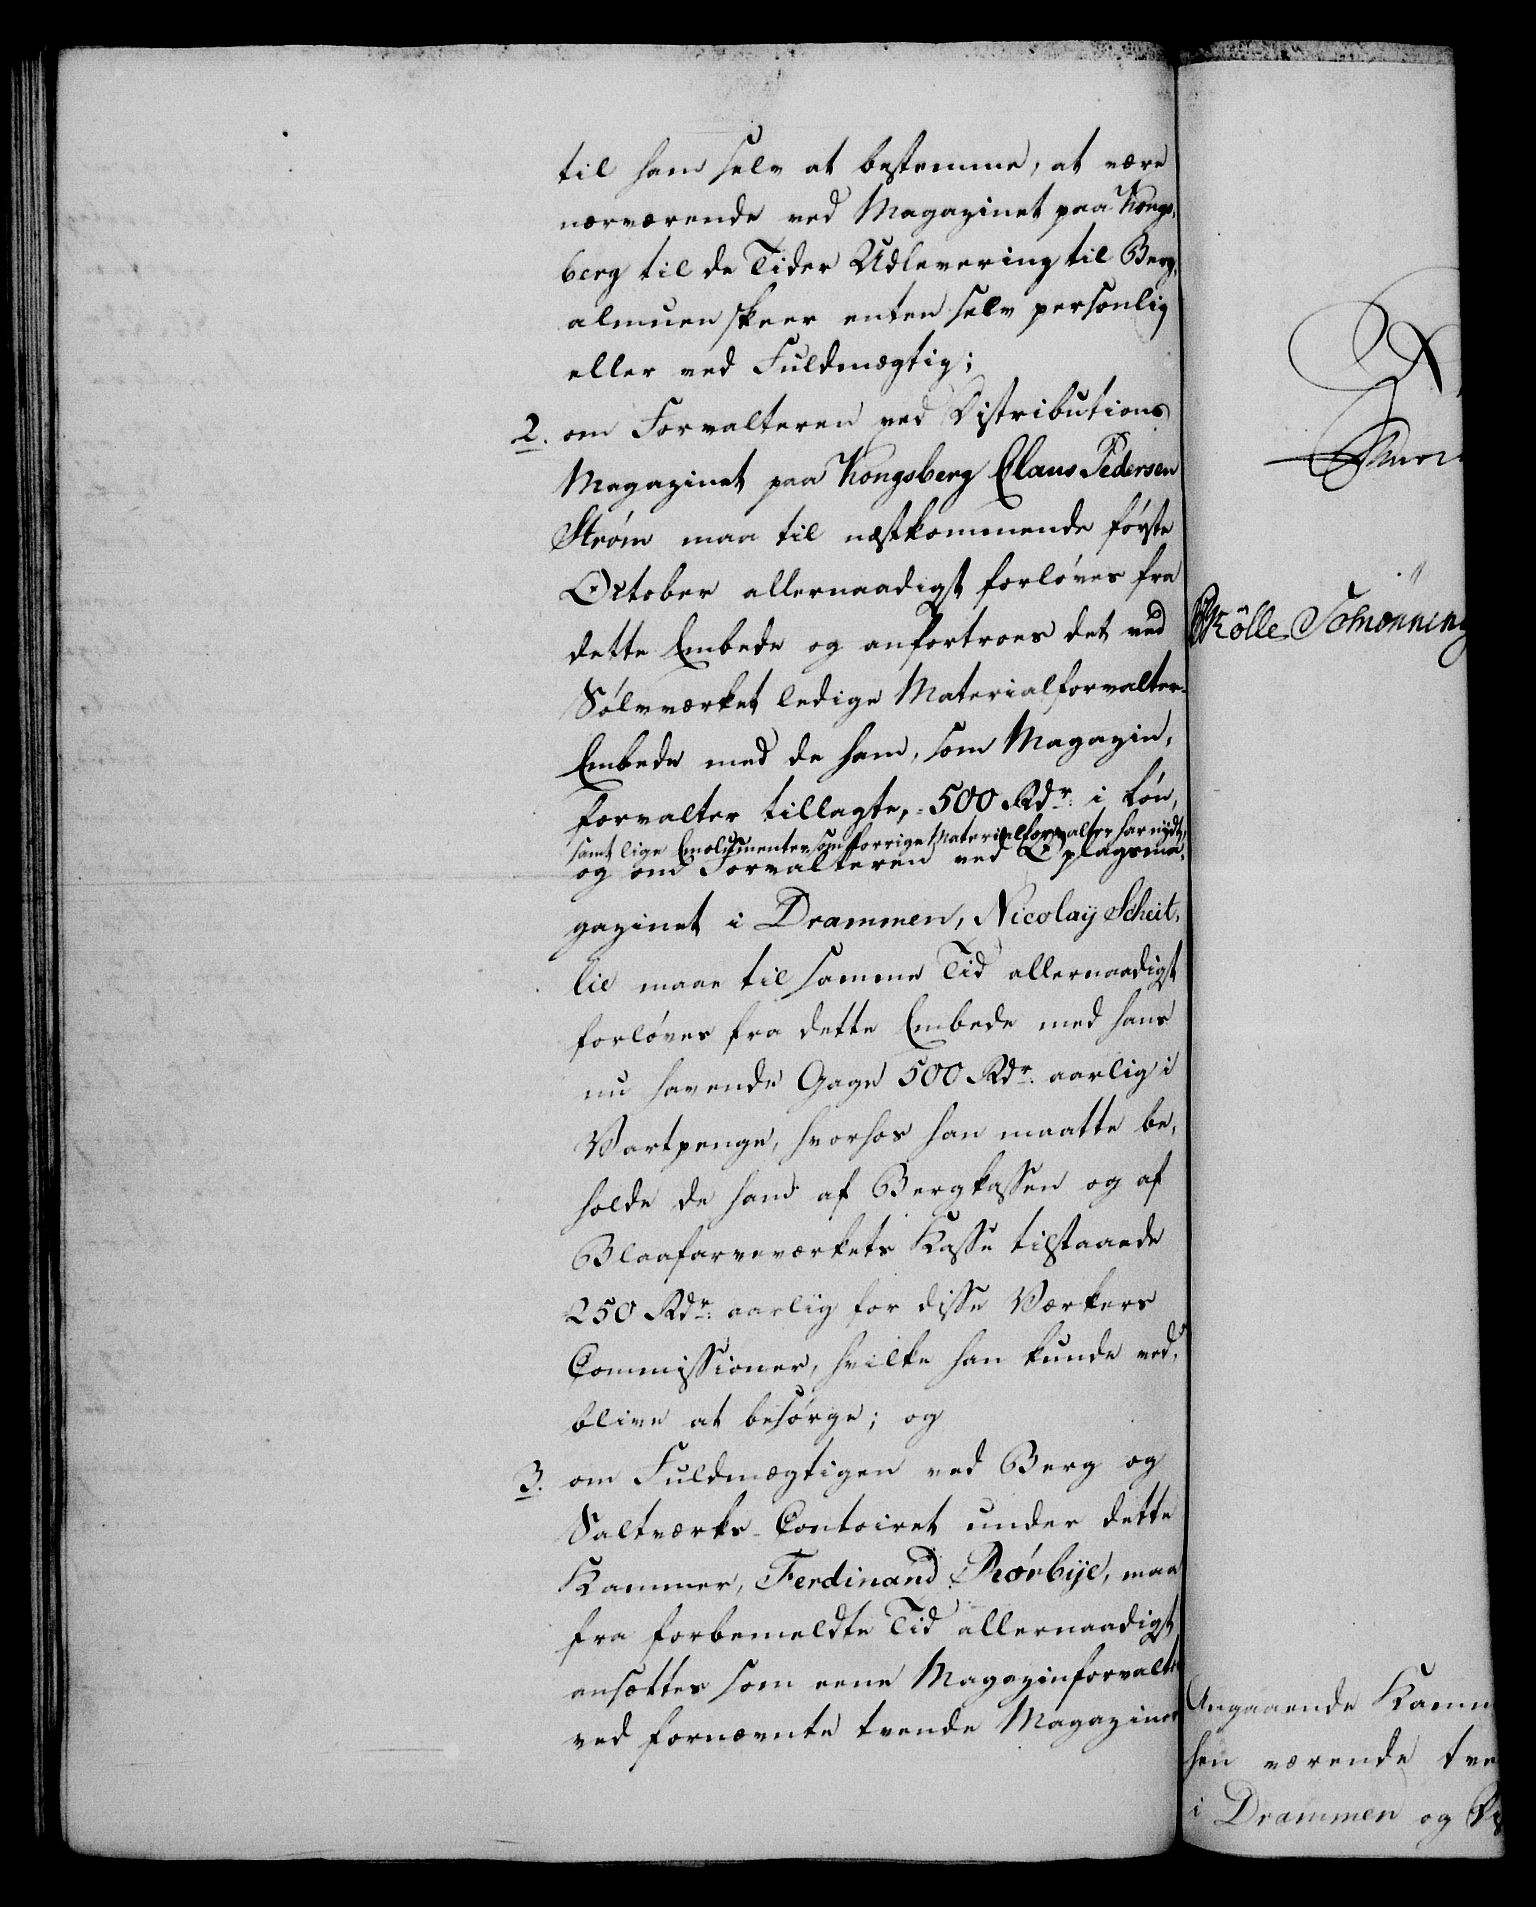 til ham selv at bestemme, at være
nærværende ved Magazinet paa Kongs,
berg til de Tider Udlevering til Berg,
almuen skeer enten selv personlig
eller ved Fuldmægtig;
2. om Forvalteren ved Distributions
Magazinet paa Kongsberg Claus Pedersen
Strøm maa til næstkommende første
October allernaadigst forløves fra
dette Embede og anfortroes det ved
Sølvværket ledige Materialforvalter-
Embede med de ham, som Magazin,
forvalter tillagte, 500 Rdr. i Løn,
samt lige Emolumenter som forrige Materialforvalter har nydt,
og om Forvalteren ved Oplagsma,
gazinet i Drammen, Nicolaÿ Scheit,
lie maae til samme Tid allernaadigst
forløves fra dette Embede med hans
nu havende Gage 500 Rdr. aarlig i
Vartpenge, hvorhos han maatte be,
holde de ham af Bergkassen og af
Blaafarveværkets Kasse tilstaaede
250 Rdr. aarlig for disse Værkers
Commissioner, hvilke han kunde ved,
blive at besørge; og
3. om Fuldmægtigen ved Berg og
Saltværks-Contoiret under dette
Kammer, Ferdinand Rørbÿe, maa
fra forbemeldte Tid allernaadigst
ansættes som eene Magazinforvalter
ved fornævnte tvende Magaziner
Kölle Schønning
Angaaende Kamm
hen værende tve
i Drammen og